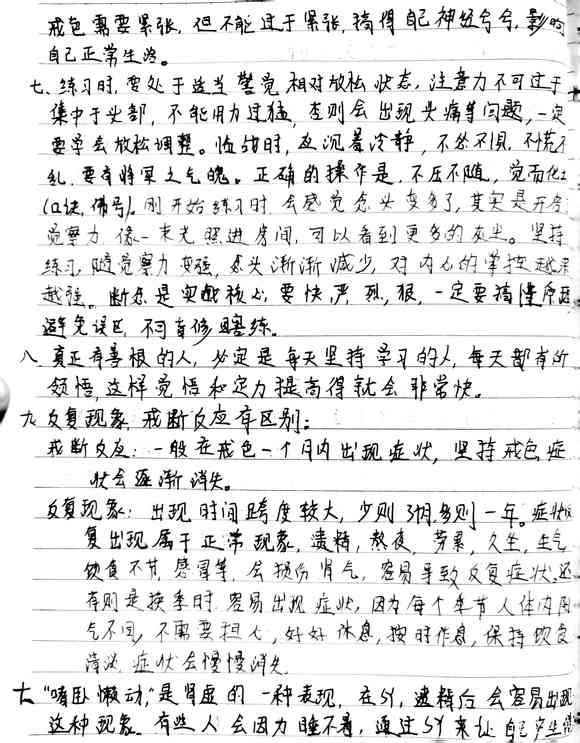 戒色需要紧张,但不能过于紧张,搞得自己神经兮兮,影响
自己正常生活。
七、练习时,要处于适当警觉相对放松状态,注意力不可过于
集中于头部,不能用力过猛,否则会出现头痛等问题,一定
要学会放松调整。临战时,应沉着冷静,不怂不惧,不慌不
乱,要有将军之气魄。正确的操作是,不压不随,觉而化之
(口诀,佛号)。刚开始练习时,会感觉念头变多了,其实是开启
觉察力,像一束光照进房间,可以看到更多的灰尘。坚持
练习,随觉察力变强,念头渐渐减少,对内心的掌控越来
越强。断念是实战核心,要快,严,烈,狠,一定要搞懂原理
避免误区,不可盲修瞎练。
八、真正有善根的人,必定是每天坚持学习的人,每天都有所
领悟,这样觉悟和定力提高得就会非常快。
九、反复现象,戒断反应有区别:
戒断反应:一般在戒色一个月内出现症状,坚持戒色症
状会逐渐消失。
反复现象:出现时间跨度较大,少则3月多则一年。症状反
复出现属于正常现象,遗精,熬夜,劳累,久坐,生气
饮食不节,感冒等,会损伤肾气,容易导致反复症状,还
有则是换季时,容易出现症状,因为每个季节人体内阳
气不同,不需要担心,好好休息,按时作息,保持饮食
清淡,症状会慢慢消失
十、"嗜卧懒动,"是肾虚的一种表现,在SY,遗精后会容易出现
这种现象。有些人会因为睡不着,通过SY来让自己产生